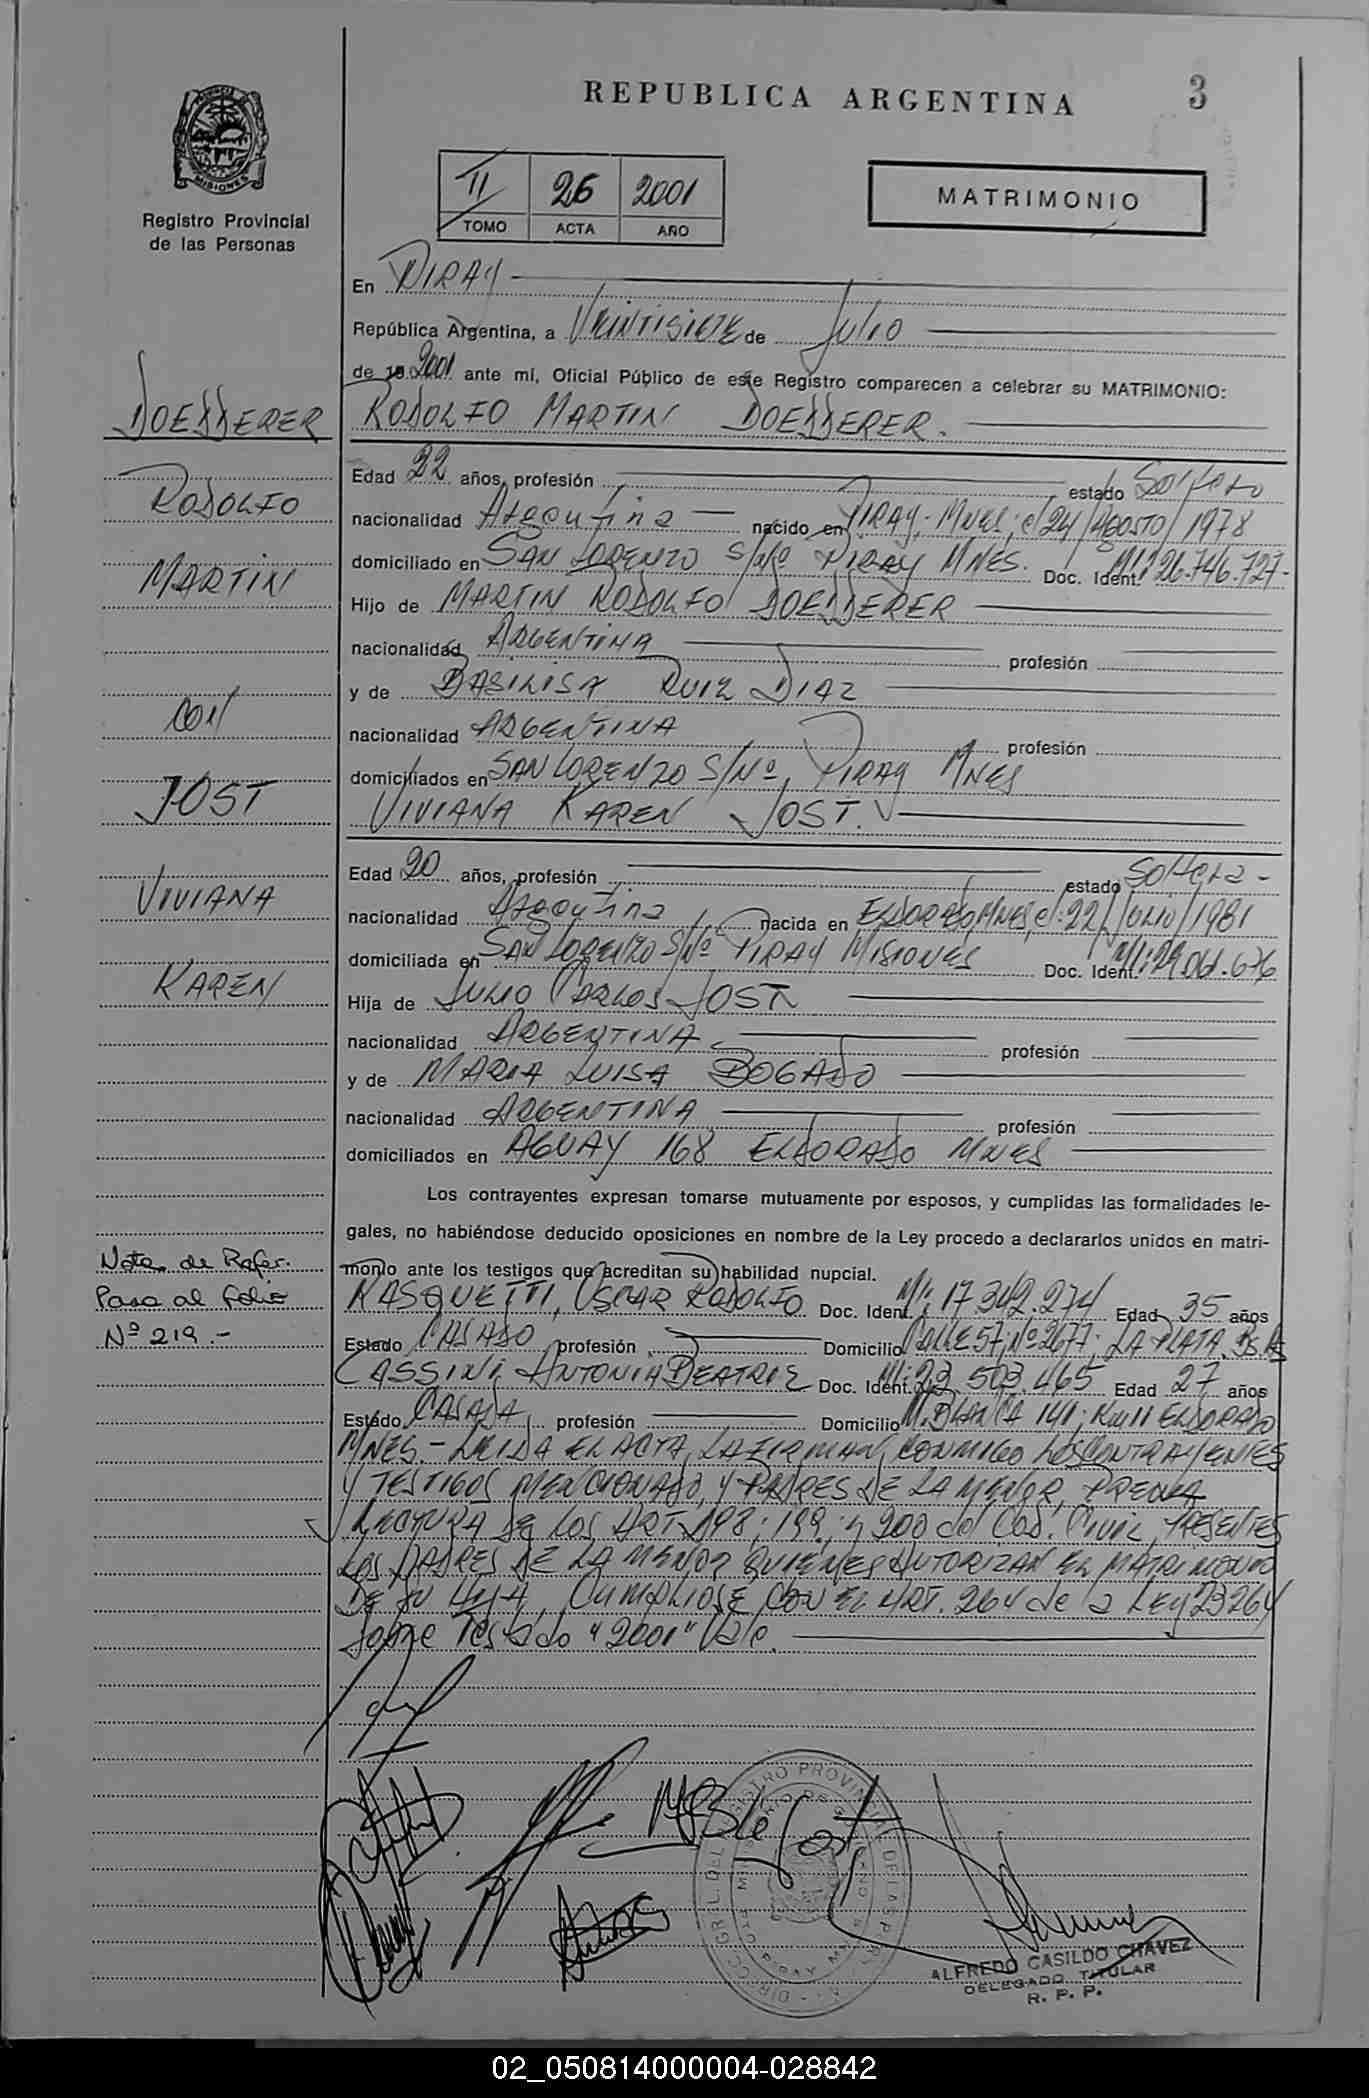 REPUBLICA ARGENTINA
3
MISIONES
Registro Provincial
de las Personas
II 26 2001
TOMO ACTA AÑO
MATRIMONIO
En PIRAY
República Argentina, a VEINTISIETE de Julio
de 19 2001 ante mí, Oficial Público de este Registro comparecen a celebrar su MATRIMONIO:
RODOLFO MARTIN DOEDDERER.
DOEDDERER
RODOLFO
MARTIN
con
JOST
VIVIANA
KAREN
Edad 22 años, profesión estado Soltero
nacionalidad Argentina nacido en PIRAY, MNES; el 24/AGOSTO/1978
domiciliado en SAN LORENZO S/Nº PIRAY MNES. Doc. Ident. MI: 26.746.727-
Hijo de MARTIN RODOLFO DOEDDERER
nacionalidad ARGENTINA profesión
y de BASILISA RUIZ DIAZ
nacionalidad ARGENTINA profesión
domiciliados en SAN LORENZO S/Nº, PIRAY MNES
VIVIANA KAREN JOST.
Edad 20 años, profesión estado Soltera-
nacionalidad Argentina nacida en ELDORADO, MNES, el: 22/JULIO/1981
domiciliada en SAN LORENZO S/Nº PIRAY MISIONES Doc. Ident. MI: 29.061.676
Hija de JULIO CARLOS JOST
nacionalidad ARGENTINA profesión
y de MARIA LUISA BOGADO
nacionalidad ARGENTINA profesión
domiciliados en AGUAY 168 ELDORADO MNES
Los contrayentes expresan tomarse mutuamente por esposos, y cumplidas las formalidades le-
gales, no habiéndose deducido oposiciones en nombre de la Ley procedo a declararlos unidos en matri-
monio ante los testigos que acreditan su habilidad nupcial.
Nota de Refer.
Pasa al folio
Nº 219.-
RASQUETTI, OSCAR RODOLFO Doc. Ident. MI: 17.342.274 Edad 35 años
Estado CASADO profesión Domicilio CALLE 57, Nº 2677; LA PLATA. Bs As
CASSINI, ANTONIA BEATRIZ Doc. Ident. MI: 23.503.465 Edad 27 años
Estado CASADA profesión Domicilio M. BLANCA 141; Km 11 ELDORADO
MNES.- LEIDA EL ACTA, LA FIRMAN, CONMIGO LOS CONTRAYENTES
Y TESTIGOS MENCIONADO, Y PADRES DE LA MENOR, PREVIA
LECTURA DE LOS ART. 198; 199; y 200 del Cod. Civil, PRESENTES
LOS PADRES DE LA MENOR QUIENES AUTORIZAN EL MATRIMONIO
DE SU HIJA, CUMPLIOSE CON EL ART. 264 de la LEY 23264
Sobre Testado "2001" Vale.
ALFREDO CASILDO CHAVEZ
DELEGADO TITULAR
R. P. P.
02_050814000004-028842